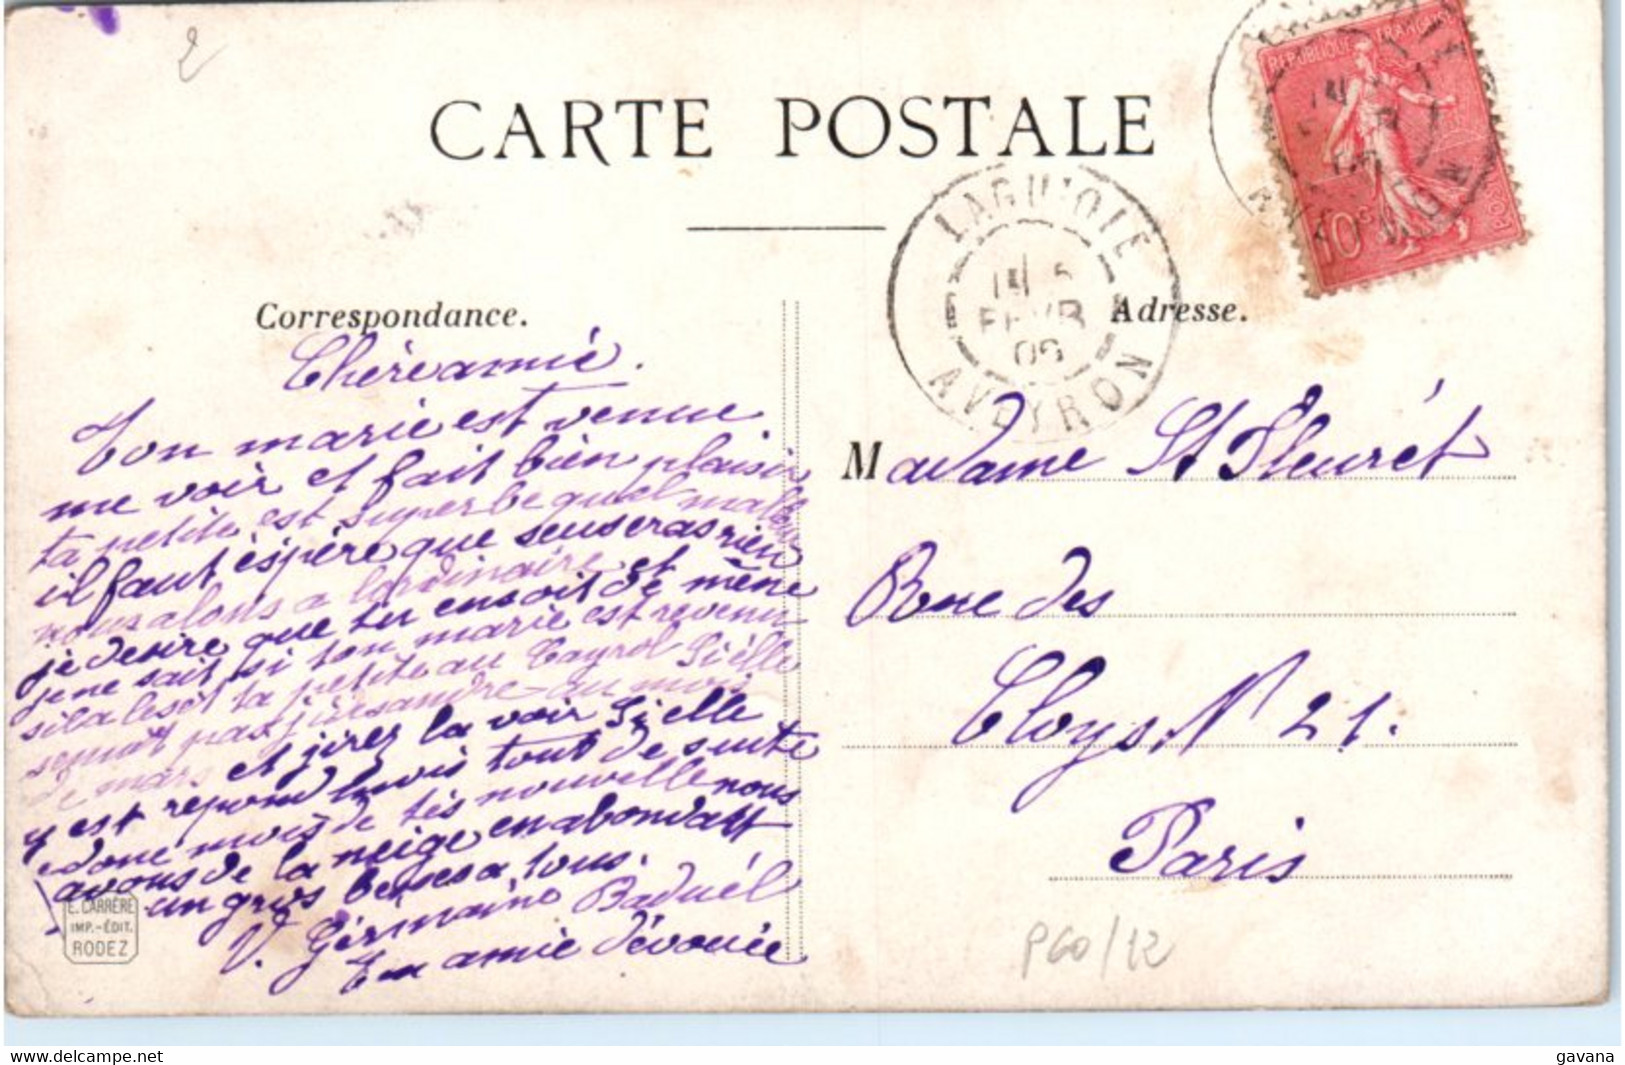 2
CARTE POSTALE
REPUBLIQUE FRANÇAISE
10c
POSTES
LAGUIOLE
FEVR
06
AVEYRON
Correspondance.
Adresse.
Chère amie.
Ton marie est venue
me voir et fait bien plaisir
ta petite est superbe quel malheur
il faut éspère que seuseras rien
nous alons a lordinaire et
je desire que tu ensoit de même
je ne sait si ton marie est revenu
sila lesét ta petite au Cayrol Si élle
serait pas
de mars et jirer la voir Si elle
y est repond mois tout de suite
done mois de tés nouvelle nous
avons de la neige enabondatt
un gros beses a tous.
V. Gérmaine Baduél
Em amie dévouée
Madame St Fleurét
Rue des
Cloys N° 21.
Paris
E. CARRÈRE
IMP.-ÉDIT.
RODEZ
P60/12
delcampe.net
gavana